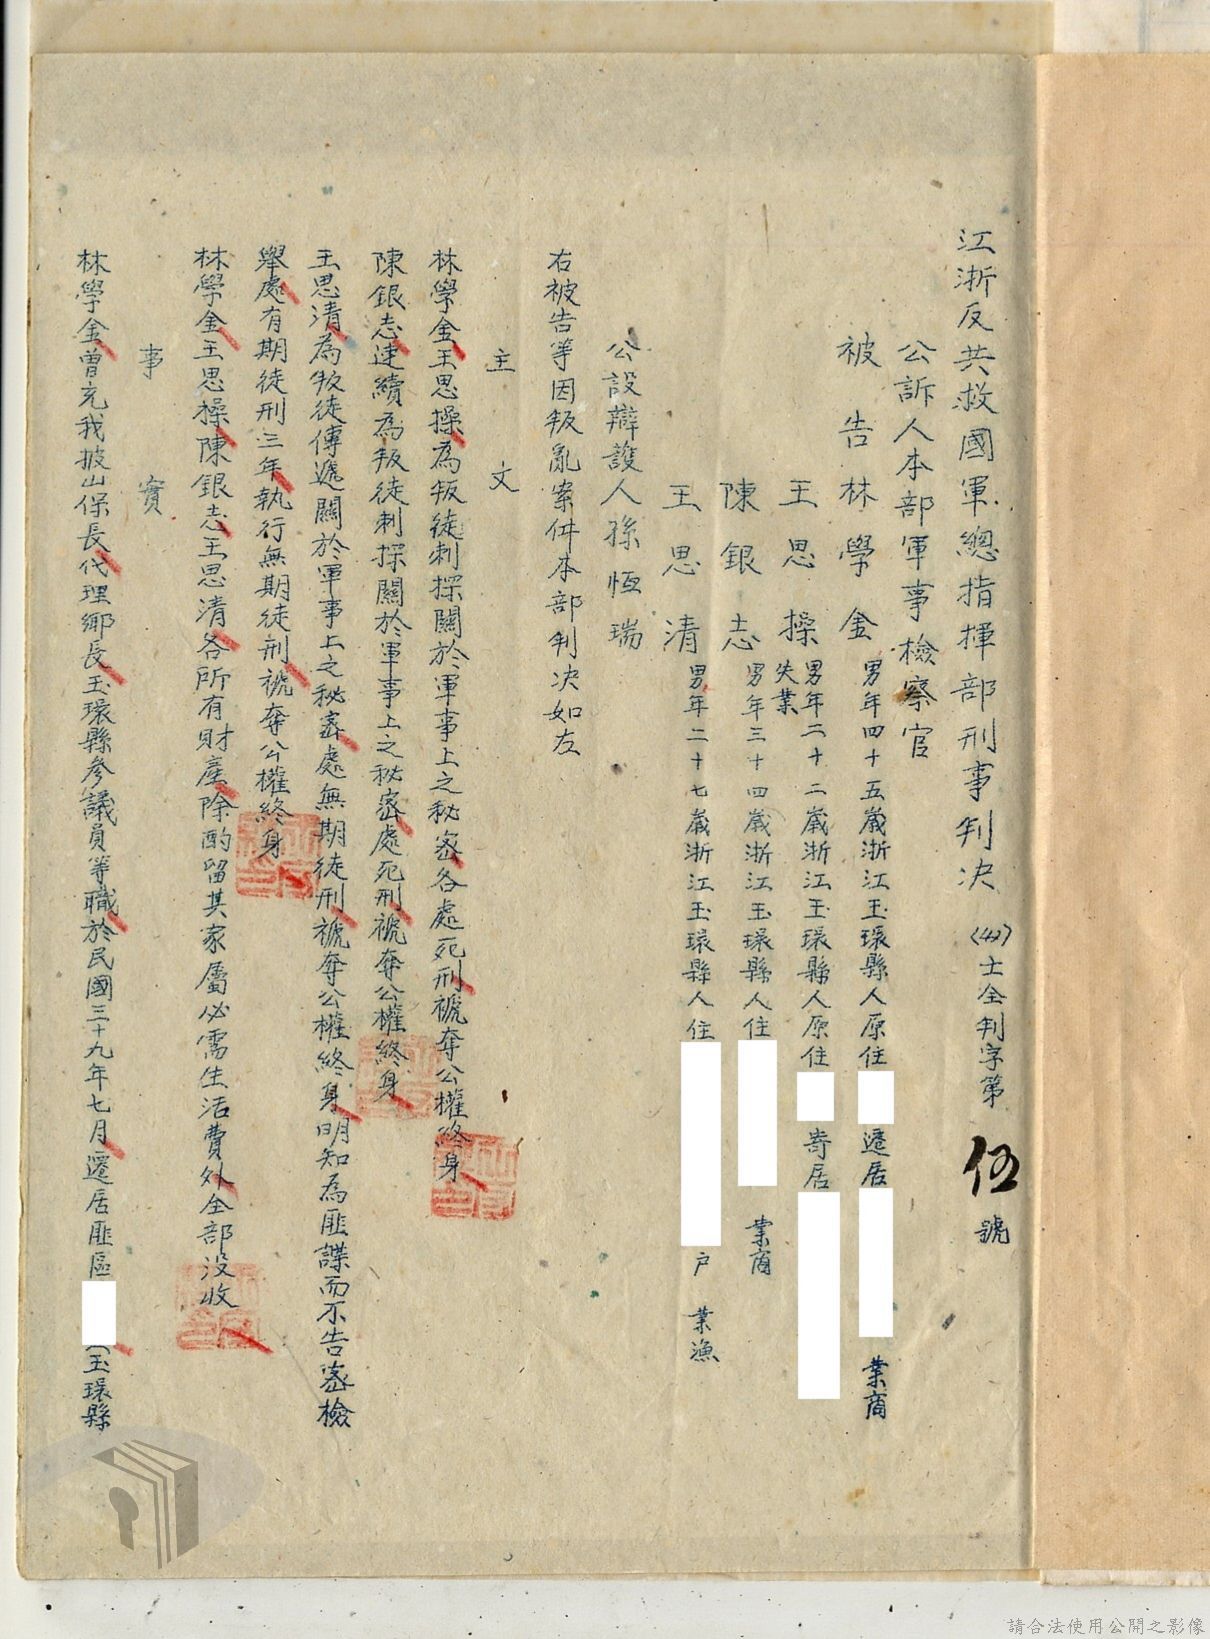 江浙反共救國軍總指揮部刑事判決 (42)士全判字第伍號
公訴人本部軍事檢察官
被告林學金 男年四十五歲浙江玉環縣人原住 遷居 業商
王思操 男年二十二歲浙江玉環縣人原住 寄居 失業
陳銀志 男年三十四歲浙江玉環縣人住 業商
王思清 男年二十七歲浙江玉環縣人住 戶 業漁
公設辯護人孫恆瑞
右被告等因叛亂案件本部判決如左
主文
林學金王思操為叛徒刺探關於軍事上之秘密各處死刑褫奪公權終身
陳銀志連續為叛徒刺探關於軍事上之秘密處死刑褫奪公權終身
王思清為叛徒傳遞關於軍事上之秘密處無期徒刑褫奪公權終身明知為匪諜而不告密檢
舉處有期徒刑三年執行無期徒刑褫奪公權終身
林學金王思操陳銀志王思清各所有財產除酌留其家屬必需生活費外全部沒收
事實
林學金曾充我披山保長代理鄉長玉環縣參議員等職於民國三十九年七月遷居匪區 (玉環縣
請合法使用公開之影像